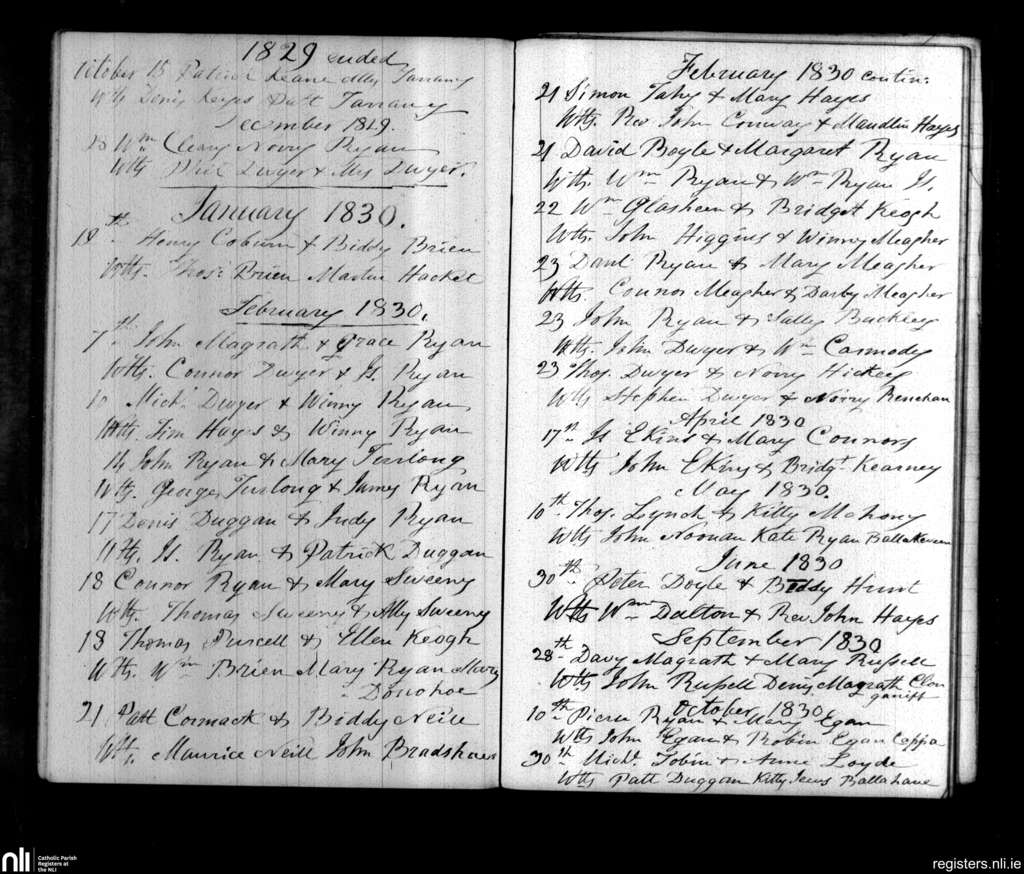 1829 ended
October 15 Patrick Keane Ally Tarrany
Wtts Denis Keyes Patt Tarrany
December 1829.
Wm Cleary Norry Ryan
Wtts Phil Dwyer & Mrs Dwyer.
January 1830.
18th Henry Coburn & Biddy Brien
Wtts. Thos: Brien Martin Hacket
February 1830.
7th John Magrath & Grace Ryan
Wtts. Connor Dwyer & Js. Ryan
10 Mich: Dwyer & Winny Ryan
Wtts. Tim Hayes & Winny Ryan
14 John Ryan & Mary Furlong
Wtts. George Furlong & James Ryan
17 Denis Duggan & Judy Ryan
Wtts. Js. Ryan & Patrick Duggan
18 Connor Ryan & Mary Sweeny
Wtts. Thomas Sweeny & Ally Sweeny
18 Thomas Purcell & Ellen Keogh
Wtts. Wm Brien Mary Ryan Mary
Donohoe
21 Patt Cormack & Biddy Neill
Wtts. Maurice Neill John Bradshaw
February 1830 contin:
21 Simon Fahy & Mary Hayes
Wtts. Rev John Conway & Maudlin Hayes
21 David Boyle & Margaret Ryan
Wtts. Wm Ryan & Wm Ryan Js.
22 Wm Glasheen & Bridget Keogh
Wtts. John Higgins & Winny Meagher
23 Danl Ryan & Mary Meagher
Wtts. Connor Meagher & Darby Meagher
23 John Ryan & Sally Buckley
Wtts. John Dwyer & Wm Carmody
23 Thos. Dwyer & Norry Hickey
Wtts Stephen Dwyer & Norry Renehan
April 1830
17th Js Ekins & Mary Connors
Wtts John Ekins & Bridgt Kearney
May 1830.
10th Thos. Lynch & Kitty Mahony
Wtts John Noonan Kate Ryan
June 1830
30th Peter Doyle & Biddy Hunt
Wtts Wm Dalton & Rev John Hayes
September 1830
28th Davy Magrath & Mary Russell
Wtts John Russell Denis Magrath Clon
ganiff
October 1830
10th Pierce Ryan & Mary Egan
Wtts John Egan & Robin Egan Ceppa
30th Michl Tobin & Anne Loyde
Wtts Patt Duggan Kitty Ballahane
nli
Catholic Parish
Registers at
the NLI
registers.nli.ie